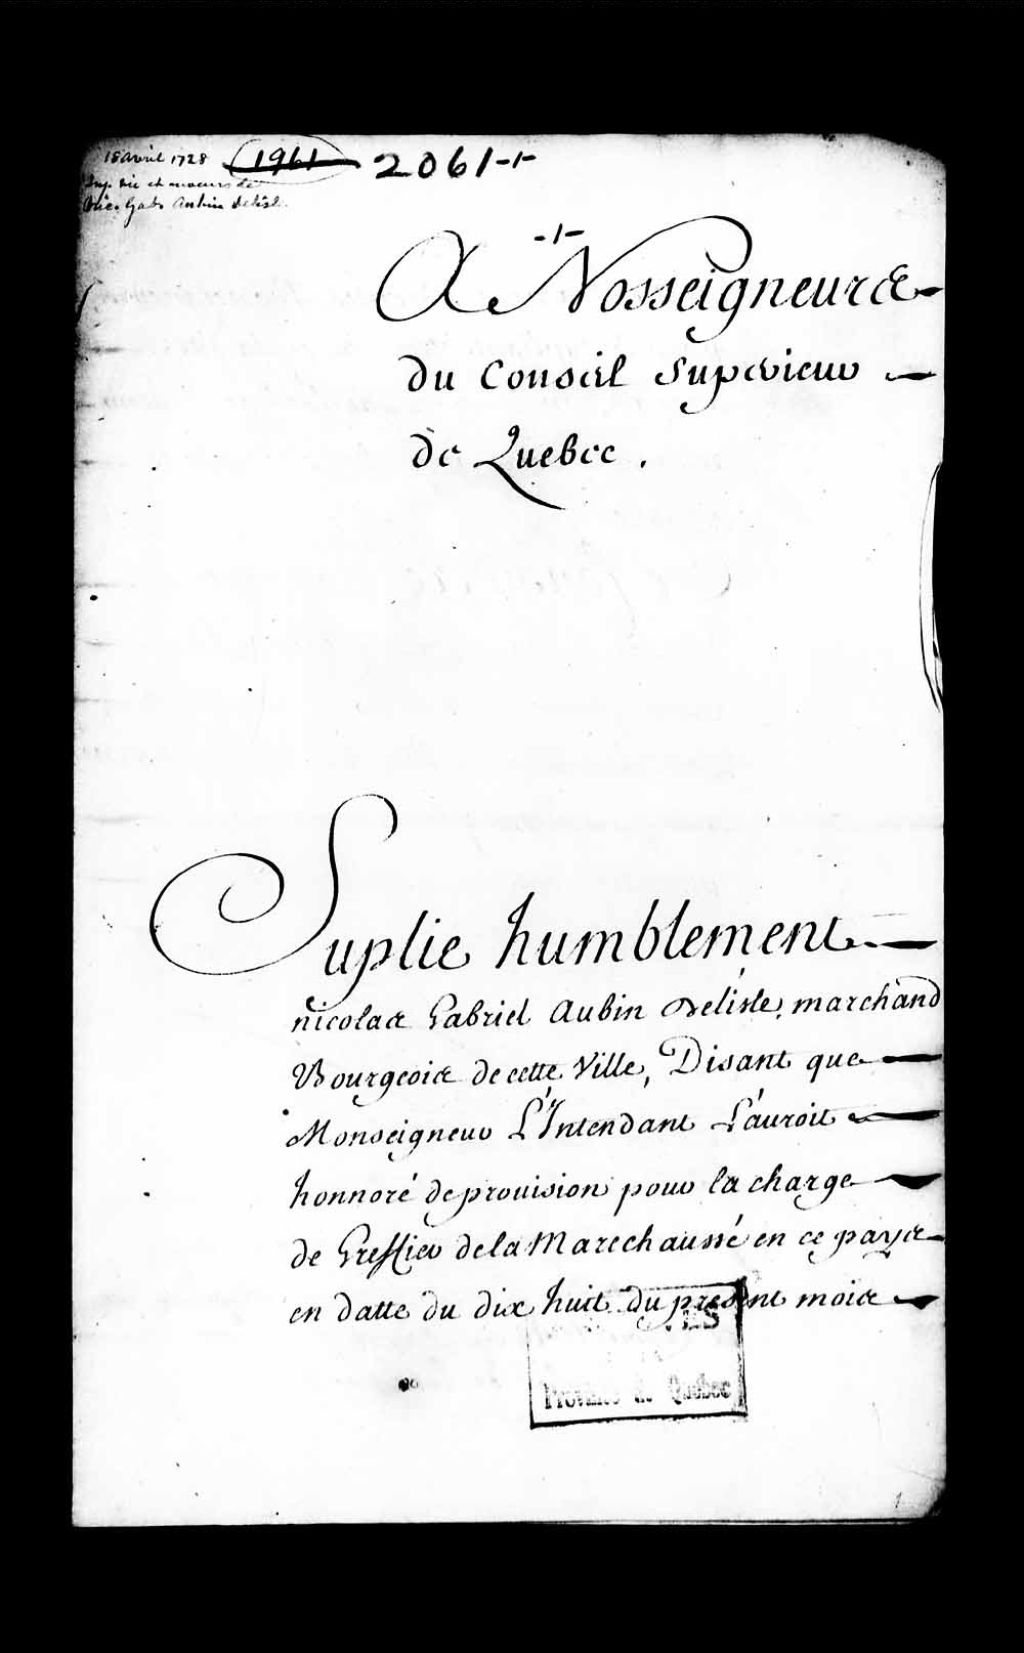 18 avril 1728 1961 2061-1-
Inf. vie et moeurs de
Nic. Gab. Aubin Delisle.
-1-
A Nosseigneurs
du Conseil Superieur
de Quebec.
Suplie humblement
nicolas Gabriel Aubin Delisle, marchand
Bourgeois de cette Ville, Disant que
Monseigneur L'Intendant L'auroit
honnoré de prouision pour la charge
de Greffier de la Marechaussé en ce pays
en datte du dix huit du present mois
Province de Quebec
1